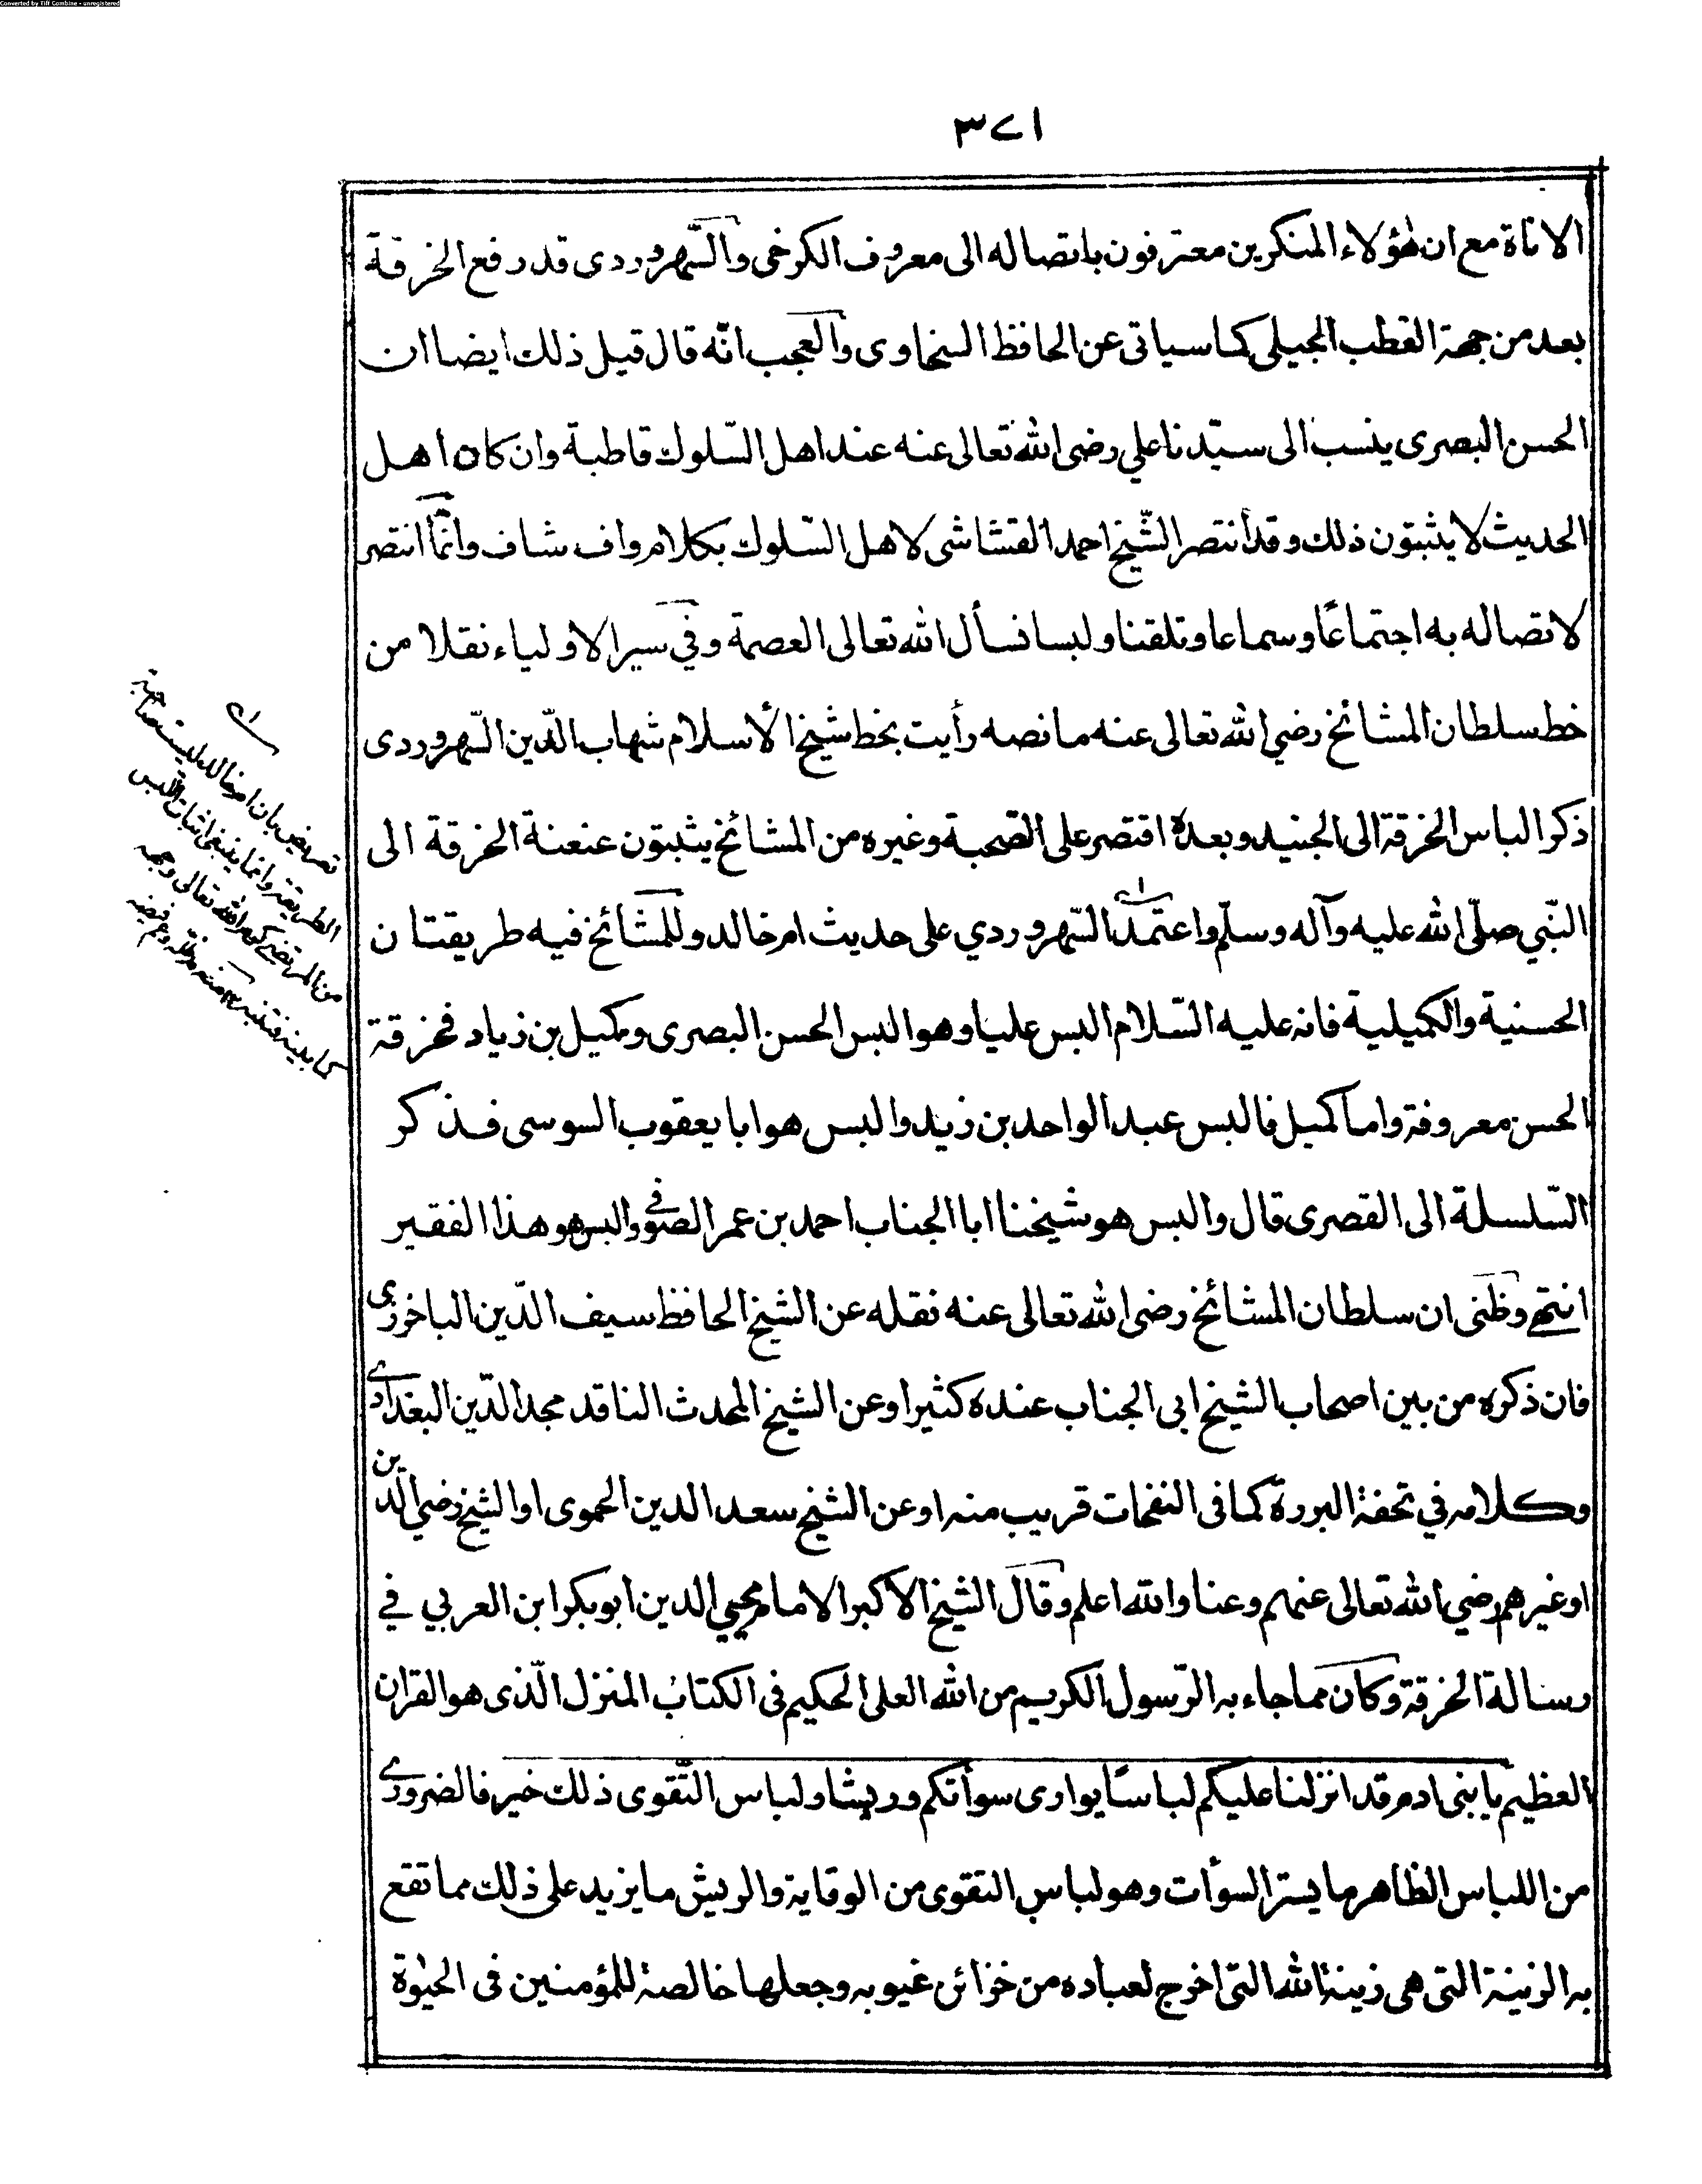 Converted by Tiff Combine - unregistered
٣٧١
الاناة مع ان هٰؤلاء المنكرين معترفون باتصاله الى معروف الكرخى والسّهروردى قد رفع الخرقة
بعد من جهة القطب الجيلى كما سياتى عن الحافظ السخاوى والعجب انّه قال قبل ذلك ايضا ان
الحسن البصرى ينسب الى سيّدنا علي رضى الله تعالى عنه عند اهل السّلوك قاطبة وان كان اهل
الحديث لا يثبتون ذلك وقد أنتصر الشّيخ احمد القشاشى لاهل السّلوك بكلام واف شاف وانّما انتصر
لاتصاله به اجتماعًا وسماعا وتلقنا ولبسا نسأل الله تعالى العصمة وفي سير الاولياء نقلا من
خط سلطان المشائخ رضي الله تعالى عنه ما نصه رأيت بخط شيخ الأسلام شهاب الدّين السّهروردى
ذكر الباس الخرقة الى الجنيد وبعده اقتصر على الصّحبة وغيره من المشائخ يثبتون عنعنة الخرقة الى
النّبي صلّى الله عليه وآله وسلّم واعتمد السّهروردي على حديث ام خالد وللمشائخ فيه طريقتان
الحسنية والكميلية فانه عليه السّلام البس عليا وهو البس الحسن البصرى وكميل بن زياد فخرقة
الحسن معروفة واما كميل فالبس عبد الواحد بن زيد والبس هو ابا يعقوب السوسى فذكر
السّلسلة الى القصرى قال والبس هو شيخنا ابا الجناب احمد بن عمر الصوفي والبس هو هذا الفقير
انتهى وظنى ان سلطان المشائخ رضى الله تعالى عنه نقله عن الشيخ الحافظ سيف الدّين الباخرزى
فان ذكره من بين اصحاب الشيخ ابى الجناب عنده كثير او عن الشيخ المحدث الناقد مجد الدّين البغدادي
وكلامه في تحفة البررة كما فى النفحات قريب منه او عن الشيخ سعد الدين الحموى او الشيخ رضي الدين
او غيرهم رضي الله تعالى عنهم وعنا والله اعلم وقال الشيخ الاكبر الامام محيي الدين ابو بكر ابن العربي في
رسالة الخرقة وكان مما جاء به الرّسول الكريم من الله العلى الحكيم فى الكتاب المنزل الّذى هو القران
العظيم يا بنى ادم قد انزلنا عليكم لباسًا يوارى سوأتكم وريشا ولباس التّقوى ذلك خير فالضرورے
من اللباس الظاهر ما يستر السوأت وهو لباس التقوى من الوقاية والريش ما يزيد على ذلك مما تقع
به الزينة التى هى زينة الله التى اخرج لعباده من خزائن غيوبه وجعلها خالصة للمؤمنين فى الحيٰوة
تعريض بان ام خالد ليست صاحبة
الطريقة وانما ينبغى اثبات اللبس
من المرتضى كرم الله تعالى وجهه
كما بينه فتنبه ١٢ منه